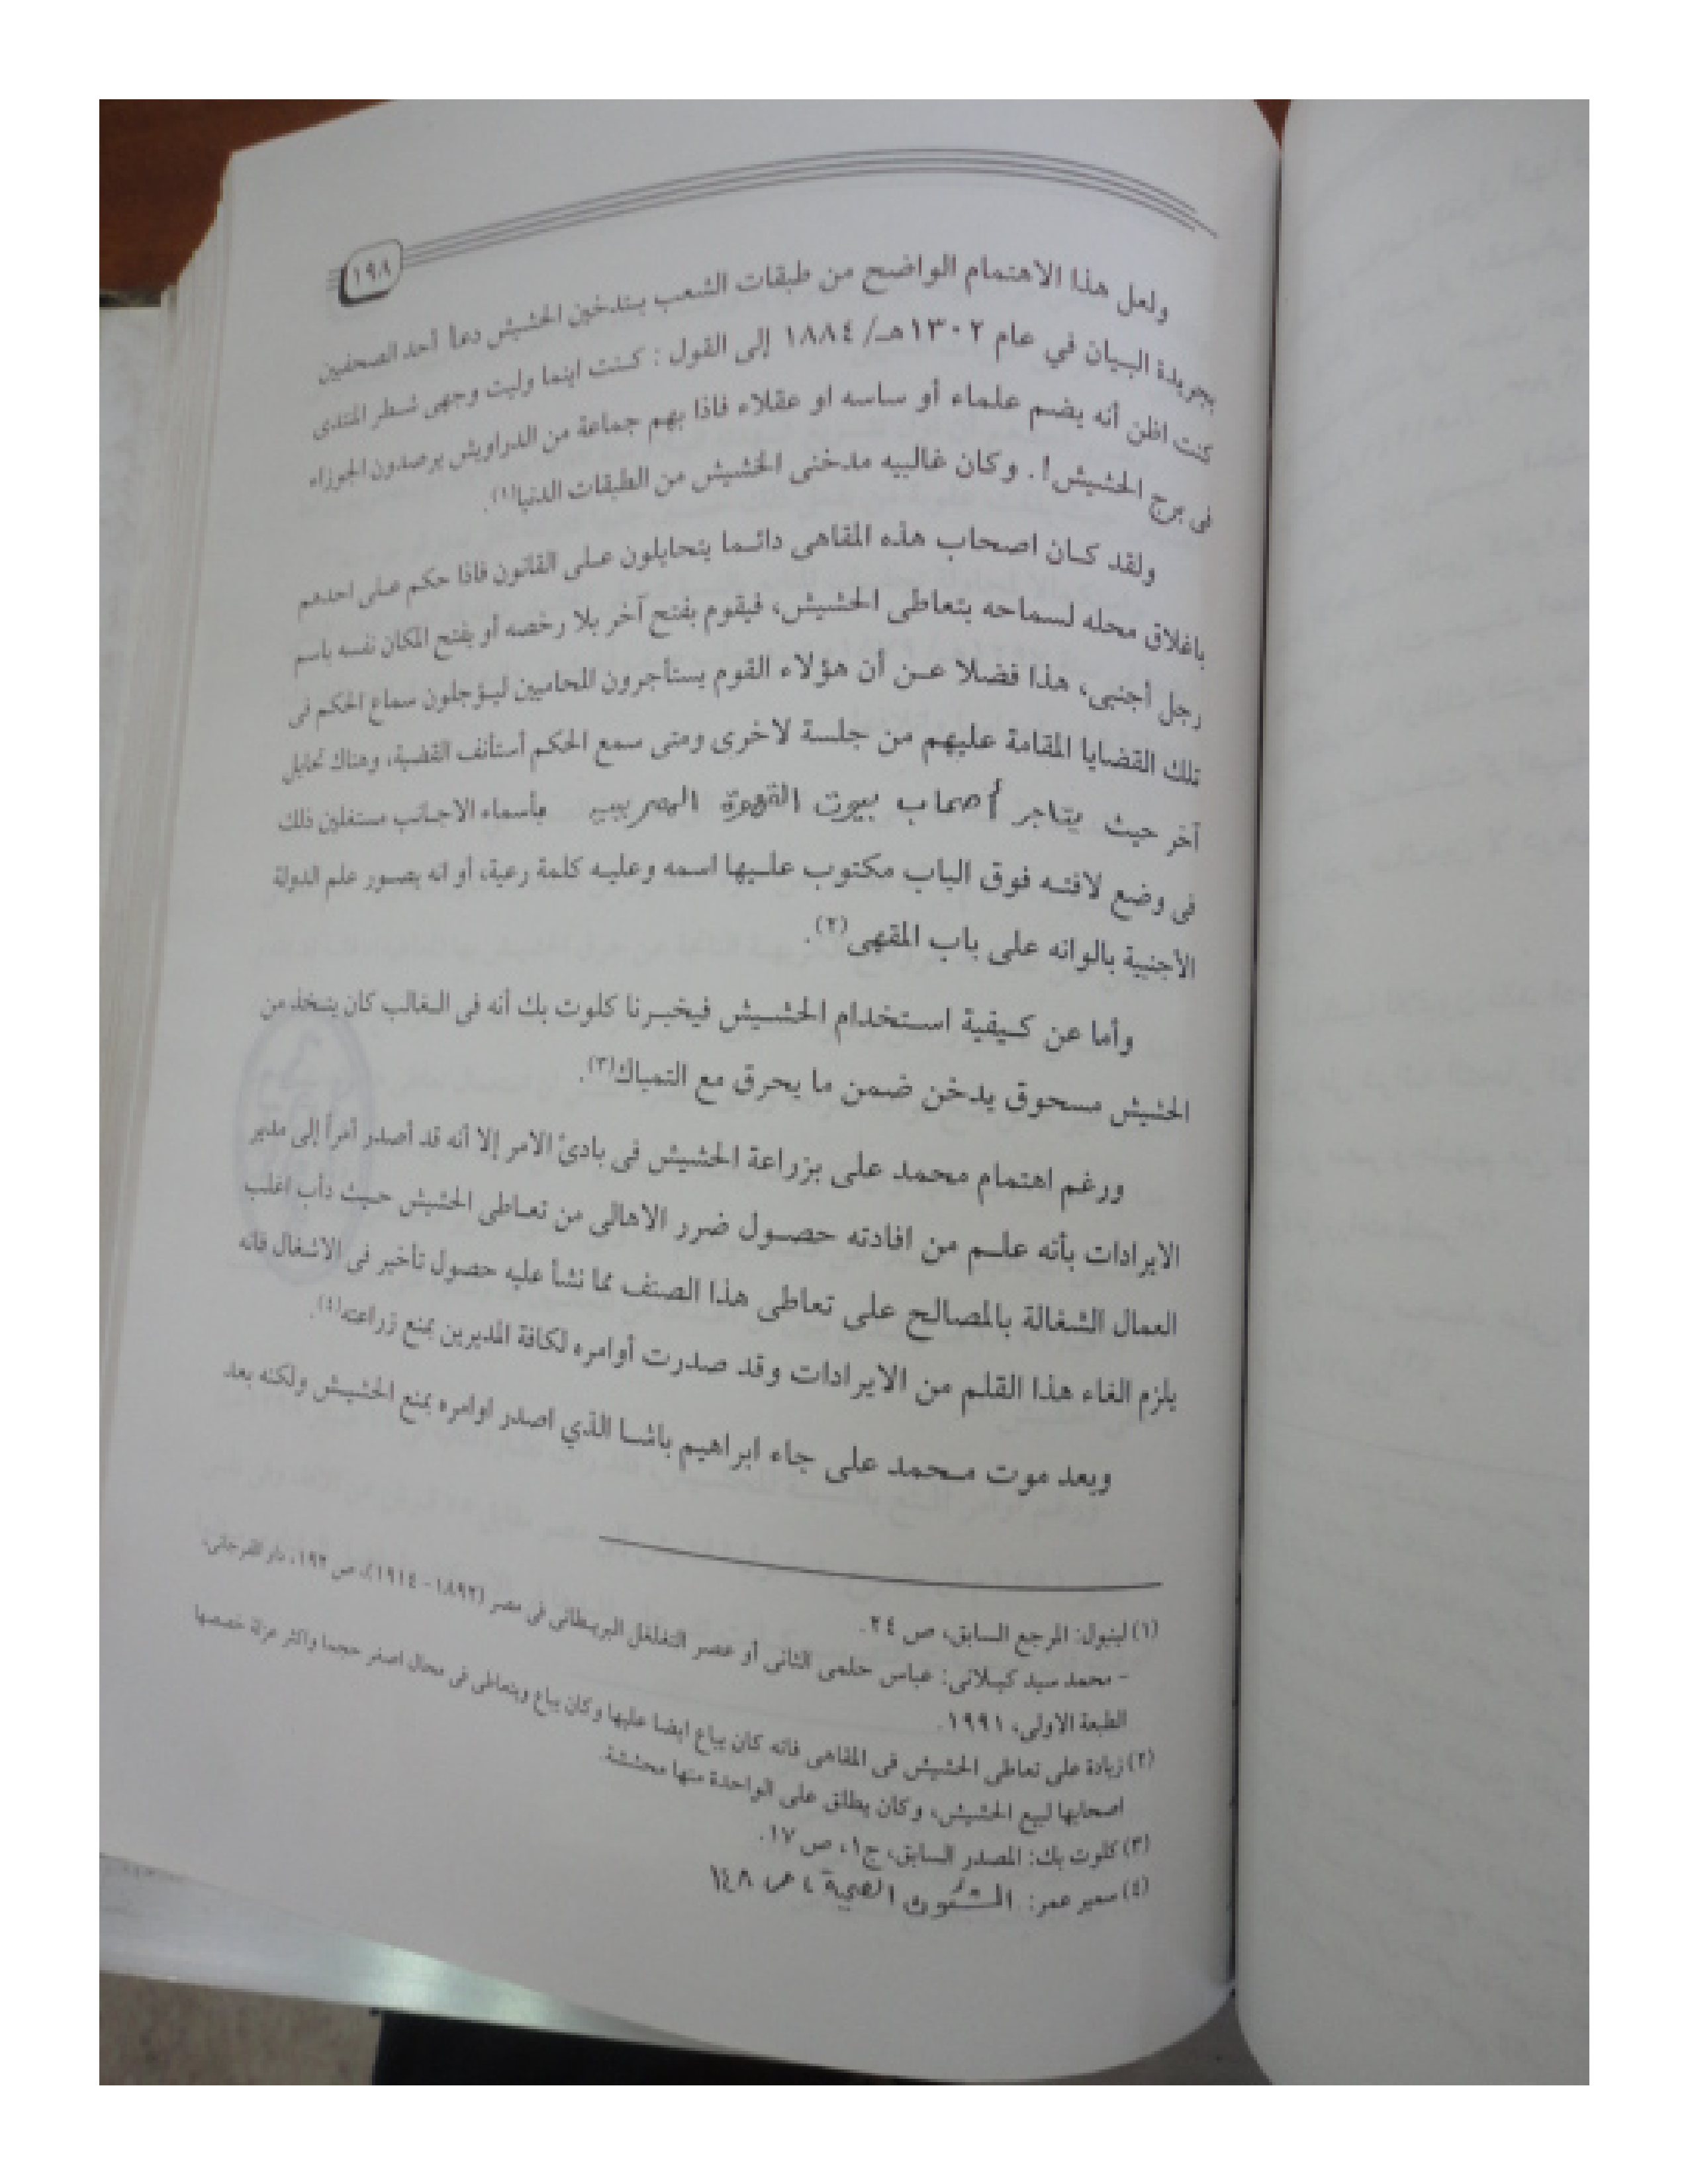 ١٩٨
ولعل هذا الاهتمام الواضح من طبقات الشعب بتدخين الحشيش دعا أحد الصحفين
بجريدة البيان في عام ١٣٠٢هـ/ ١٨٨٤ إلى القول : كنت اينما وليت وجهى شطر المنتدى
كنت اظن أنه يضم علماء أو ساسه او عقلاء فاذا بهم جماعة من الدراويش يرصدون الجوزاء
فى برج الحشيش!. وكان غالبيه مدخنى الحشيش من الطبقات الدنيا(١).
ولقد كان اصحاب هذه المقاهى دائما يتحايلون على القانون فاذا حكم على احدهم
باغلاق محله لسماحه بتعاطى الحشيش، فيقوم بفتح آخر بلا رخصه أو بفتح المكان نفسه باسم
رجل أجنبى، هذا فضلا عن أن هؤلاء القوم يستأجرون المحاميين ليؤجلون سماع الحكم فى
تلك القضايا المقامة عليهم من جلسة لاخرى ومتى سمع الحكم أستأنف القضية، وهناك تحايل
آخر حيث يتاجر أصحاب بيوت القهوة المصريين بأسماء الاجانب مستغلين ذلك
فى وضع لافته فوق الباب مكتوب عليها اسمه وعليه كلمة رعية، أو انه يصور علم الدولة
الأجنبية بالوانه على باب المقهى(٢).
وأما عن كيفية استخدام الحشيش فيخبرنا كلوت بك أنه فى الغالب كان يتخذ من
الحشيش مسحوق يدخن ضمن ما يحرق مع التمباك(٣).
ورغم اهتمام محمد على بزراعة الحشيش فى بادئ الامر إلا أنه قد أصدر أمراً إلى مدير
الايرادات بأنه علم من افادته حصول ضرر الاهالى من تعاطى الحشيش حيث دأب اغلب
العمال الشغالة بالمصالح على تعاطى هذا الصنف مما نشأ عليه حصول تأخير فى الاشغال فانه
يلزم الغاء هذا القلم من الايرادات وقد صدرت أوامره لكافة المديرين بمنع زراعته(٤).
وبعد موت محمد على جاء ابراهيم باشا الذي اصدر اوامره بمنع الحشيش ولكنه بعد
(١) لينبول: المرجع السابق، ص ٢٤.
- محمد سيد كيلانى: عباس حلمى الثانى أو عصر التغلغل البريطانى فى مصر (١٨٩٢- ١٩١٤)، ص ١٩٢، دار الفرجانى،
الطبعة الاولى، ١٩٩١.
(٢) زيادة على تعاطى الحشيش فى المقاهى فانه كان يباع ايضا عليها وكان يباع ويتعاطى فى محال اصغر حجما واكثر عزلة خصصها
اصحابها لبيع الحشيش، وكان يطلق على الواحدة منها محششة.
(٣) كلوت بك: المصدر السابق، ج١، ص ١٧.
(٤) سمير عمر: الشئون الصحية ، ص ١٤٨